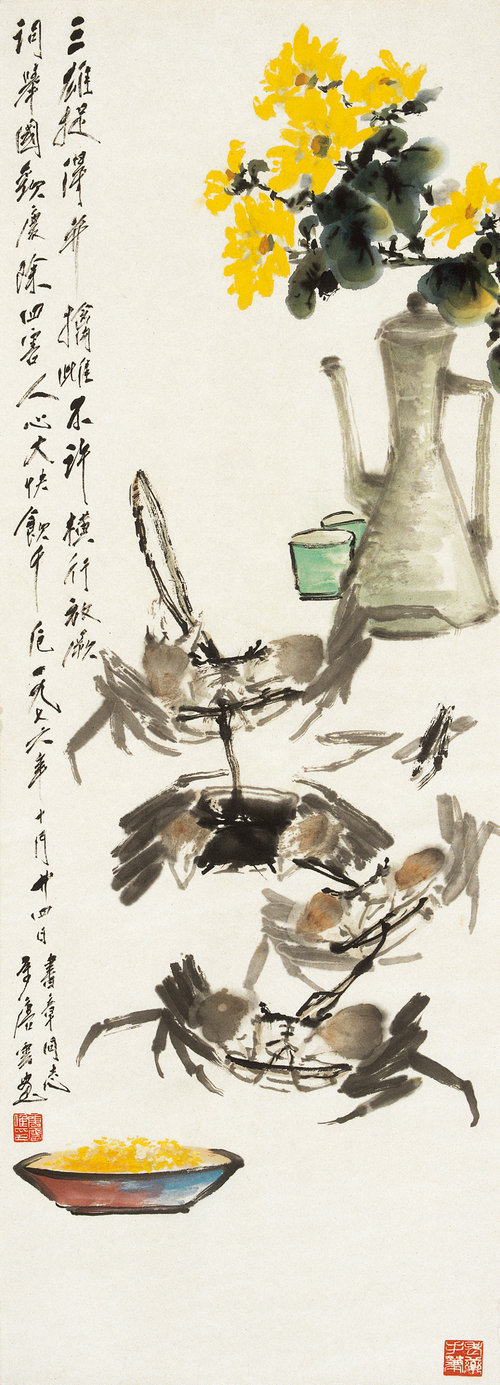 三雄捉得并擒雌不許橫行放厥
詞舉國歡慶除四害人心大快飲千卮一九七六年十月廿四日
同志
唐雲畫